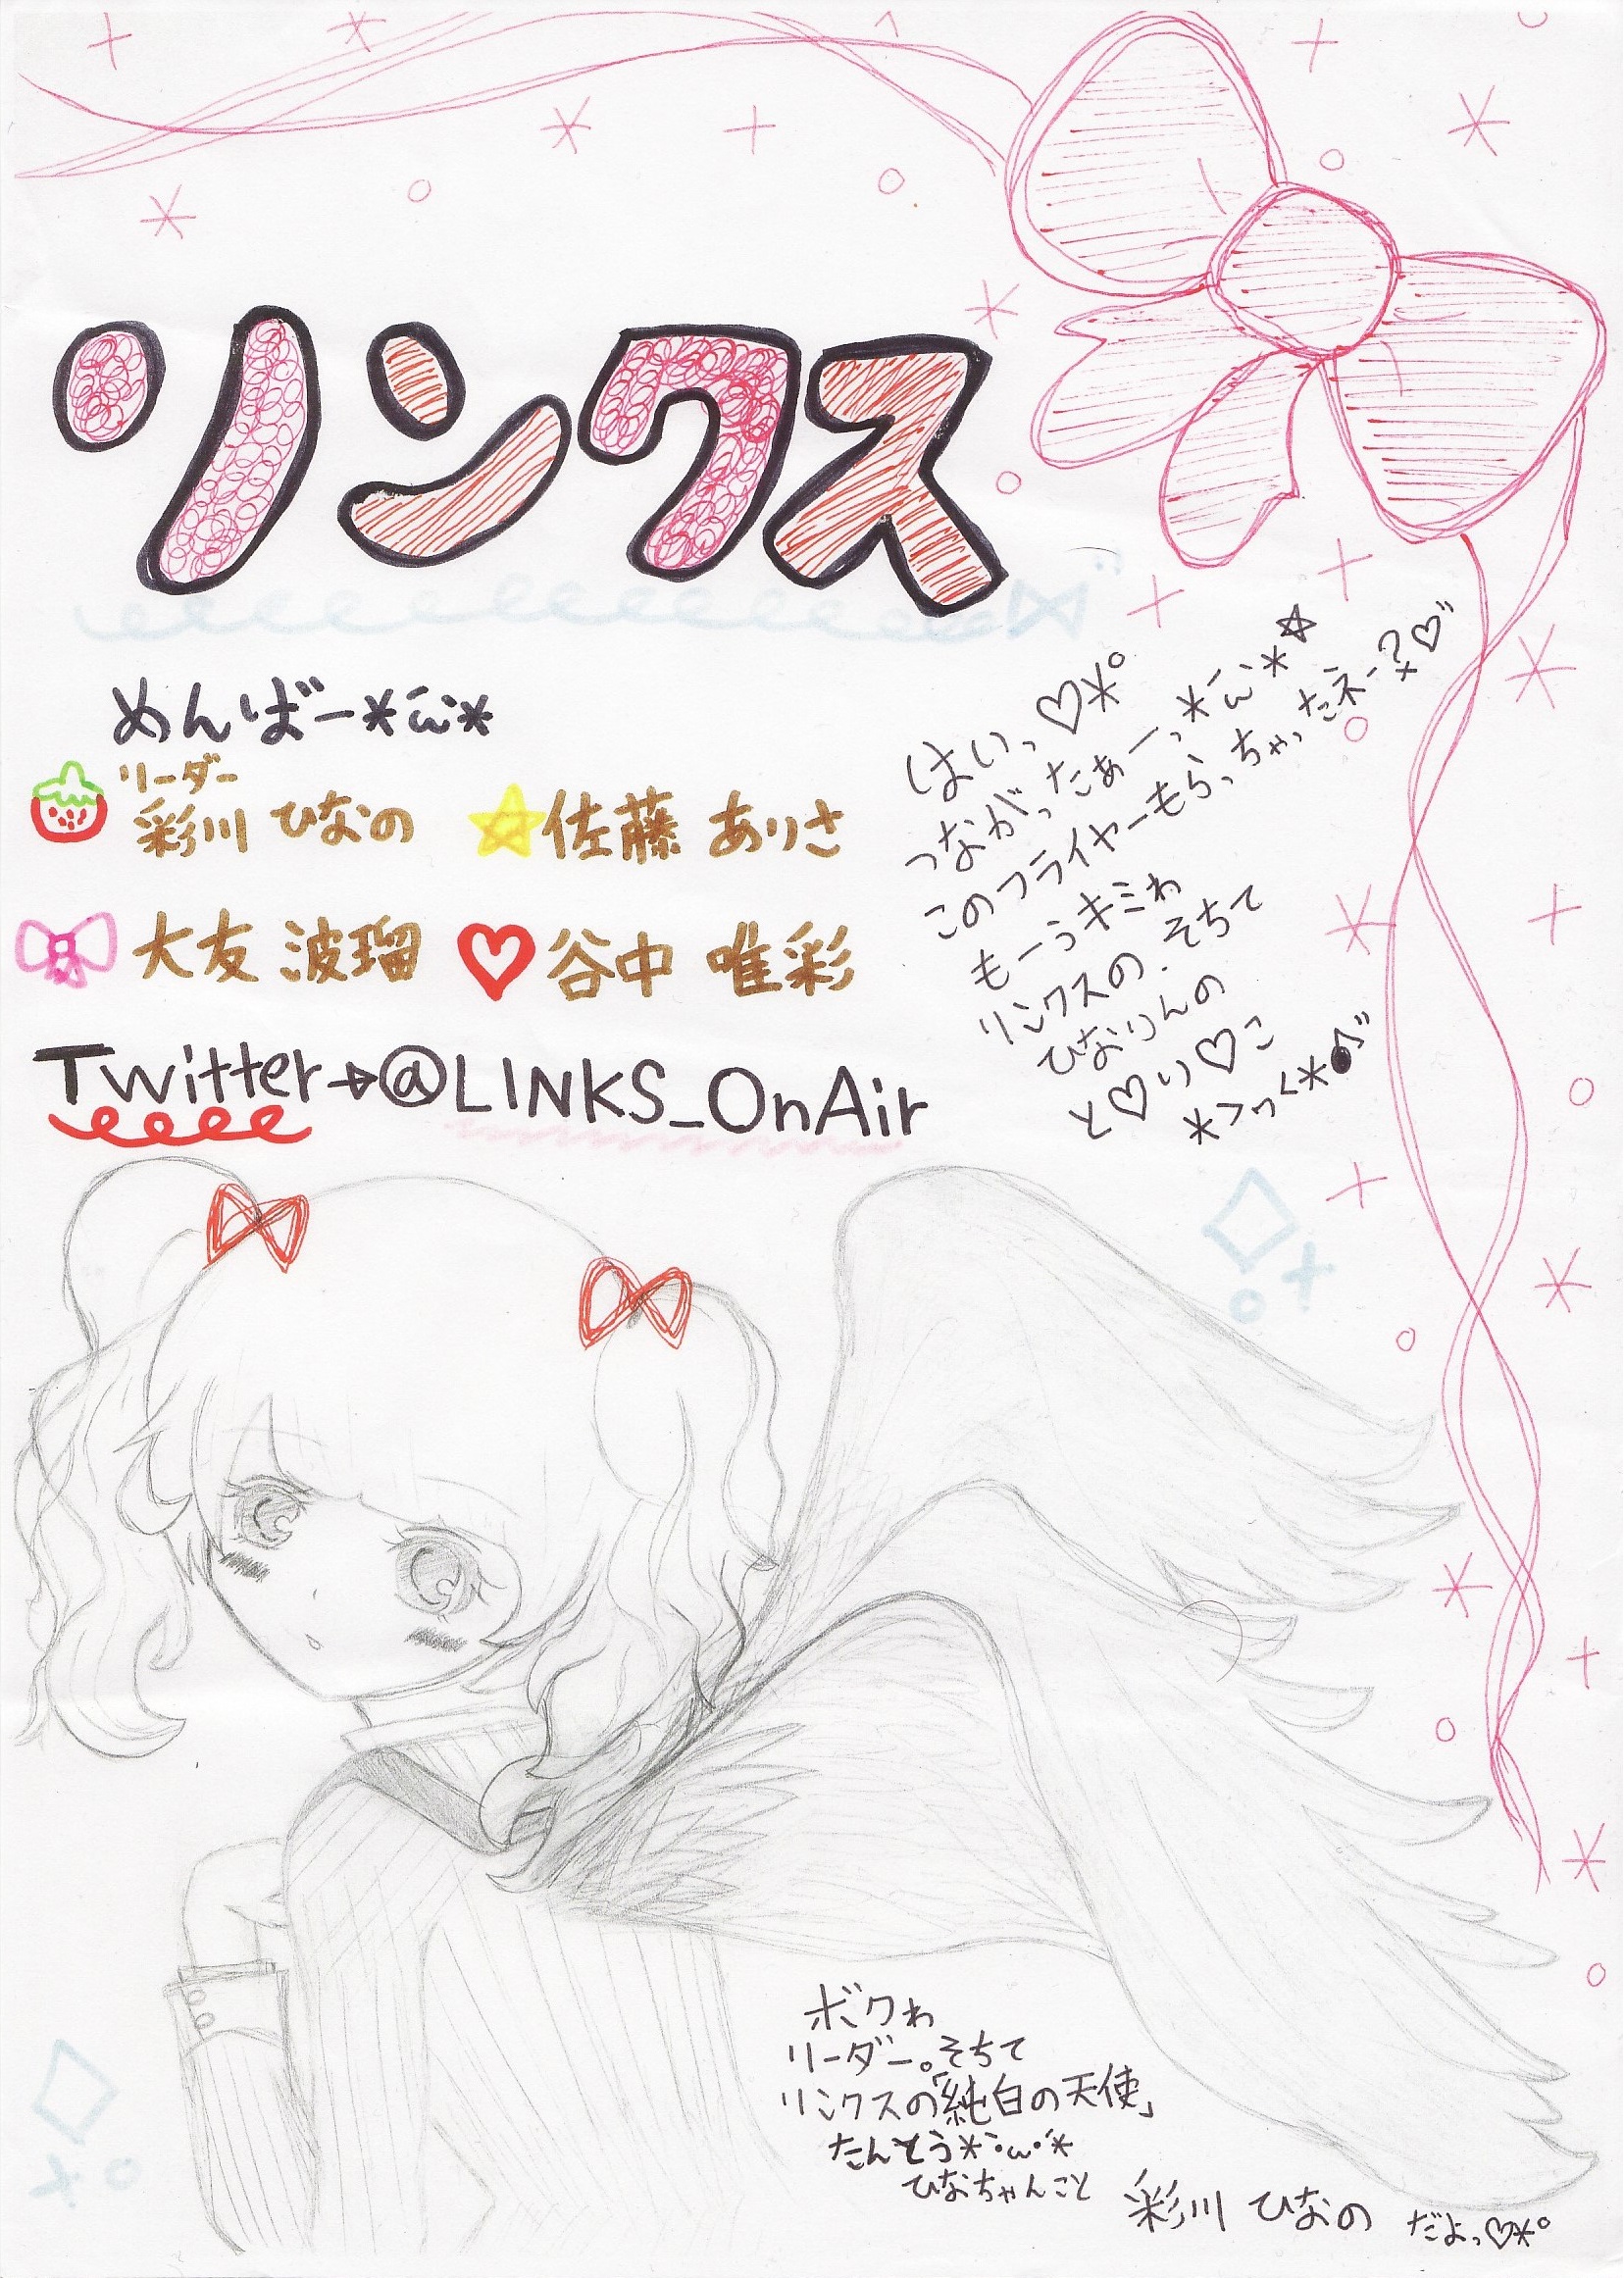 リンクス
めんばー*´ω`*
リーダー
彩川 ひなの
佐藤 ありさ
大友 波瑠
谷中 唯彩
Twitter→@LINKS_OnAir
はいっ♡*°
つながったぁーっ*´ω`*☆
このフライヤーもらっちゃったネー?♡"
もーうキミわ
リンクスの. そちて
ひなりんの
と♡り♡こ
*>ワ<*♪"
ボクわ
リーダー。そちて
リンクスの「純白の天使」
たんとう*`･ω･´*
ひなちゃんこと
彩川 ひなの だよっ♡*°